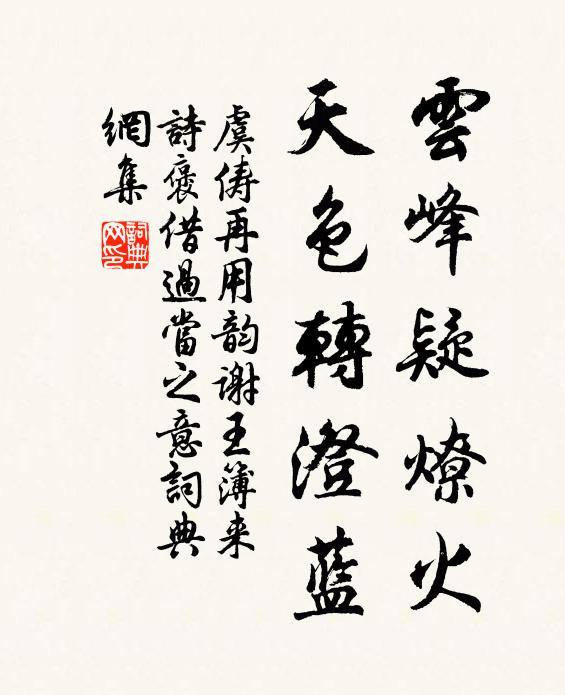 雲峰疑燎火
天色轉澄藍
虞俦再用韵谢王簿来
詩褒借過當之意詞典
網集
詞典网印